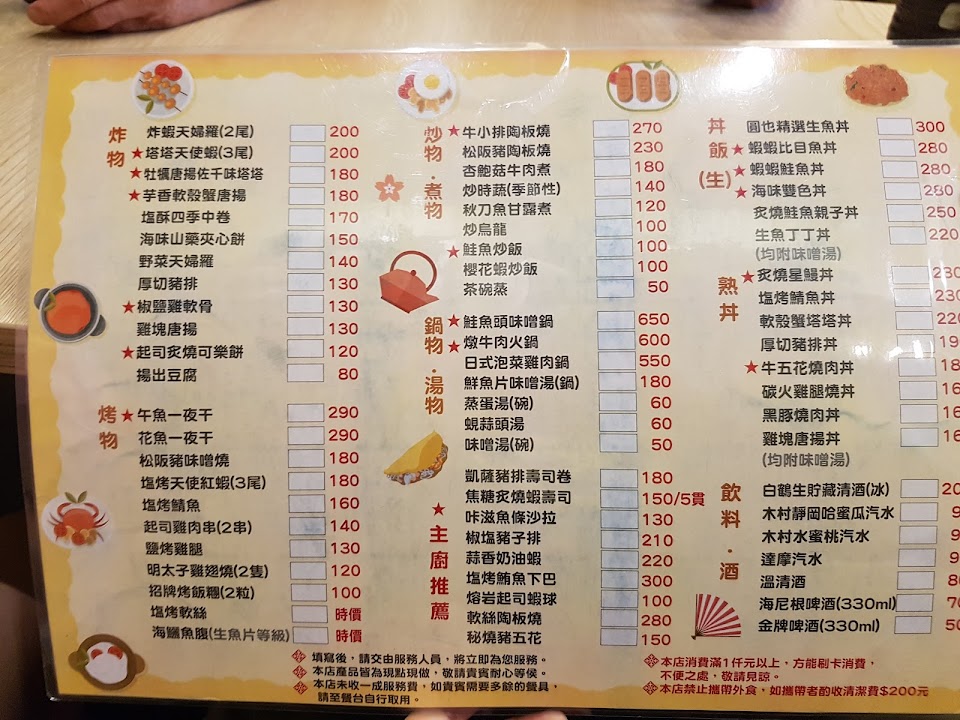 炸物
炸蝦天婦羅(2尾) 200
★塔塔天使蝦(3尾) 200
★牡犡唐揚佐千味塔塔 180
★芋香軟殼蟹唐揚 180
塩酥四季中卷 170
海味山藥夾心餅 150
野菜天婦羅 140
厚切豬排 130
★椒鹽雞軟骨 130
雞塊唐揚 130
★起司炙燒可樂餅 120
揚出豆腐 80
烤物
★午魚一夜干 290
花魚一夜干 290
松阪豬味噌燒 180
塩烤天使紅蝦(3尾) 180
塩烤鯖魚 160
起司雞肉串(2串) 140
鹽烤雞腿 130
明太子雞翅燒(2隻) 120
招牌烤飯糰(2粒) 100
塩烤軟絲 時價
海鱺魚腹(生魚片等級) 時價
炒物·煮物
★牛小排陶板燒 270
松阪豬陶板燒 230
杏鮑菇牛肉煮 180
炒時蔬(季節性) 140
秋刀魚甘露煮 120
炒烏龍 100
★鮭魚炒飯 100
櫻花蝦炒飯 100
茶碗蒸 50
鍋物·湯物
★鮭魚頭味噌鍋 650
★燉牛肉火鍋 600
日式泡菜雞肉鍋 550
鮮魚片味噌湯(鍋) 180
蒸蛋湯(碗) 60
蜆蒜頭湯 60
味噌湯(碗) 50
★主廚推薦
凱薩豬排壽司卷 180
焦糖炙燒蝦壽司 150/5貫
咔滋魚條沙拉 130
椒塩豬子排 210
蒜香奶油蝦 220
塩烤鮪魚下巴 300
熔岩起司蝦球 100
軟絲陶板燒 280
秘燒豬五花 150
丼飯(生)
圓也精選生魚丼 300
★蝦蝦比目魚丼 280
★蝦蝦鮭魚丼 280
★海味雙色丼 280
炙燒鮭魚親子丼 250
生魚丁丁丼 220
(均附味噌湯)
熟丼
★炙燒星鰻丼 230
塩烤鯖魚丼 230
軟殼蟹塔塔丼 220
厚切豬排丼
★牛五花燒肉丼
碳火雞腿燒丼
黑豚燒肉丼
雞塊唐揚丼
(均附味噌湯)
飲料·酒
白鶴生貯藏清酒(冰)
木村靜岡哈蜜瓜汽水
木村水蜜桃汽水
達摩汽水
溫清酒
海尼根啤酒(330ml)
金牌啤酒(330ml)
填寫後，請交由服務人員，將立即為您服務。
本店產品皆為現點現做，敬請貴賓耐心等侯。
本店未收一成服務費，如貴賓需要多餘的餐具，
請至餐台自行取用。
本店消費滿1仟元以上，方能刷卡消費，
不便之處，敬請見諒。
本店禁止攜帶外食，如攜帶者酌收清潔費$200元